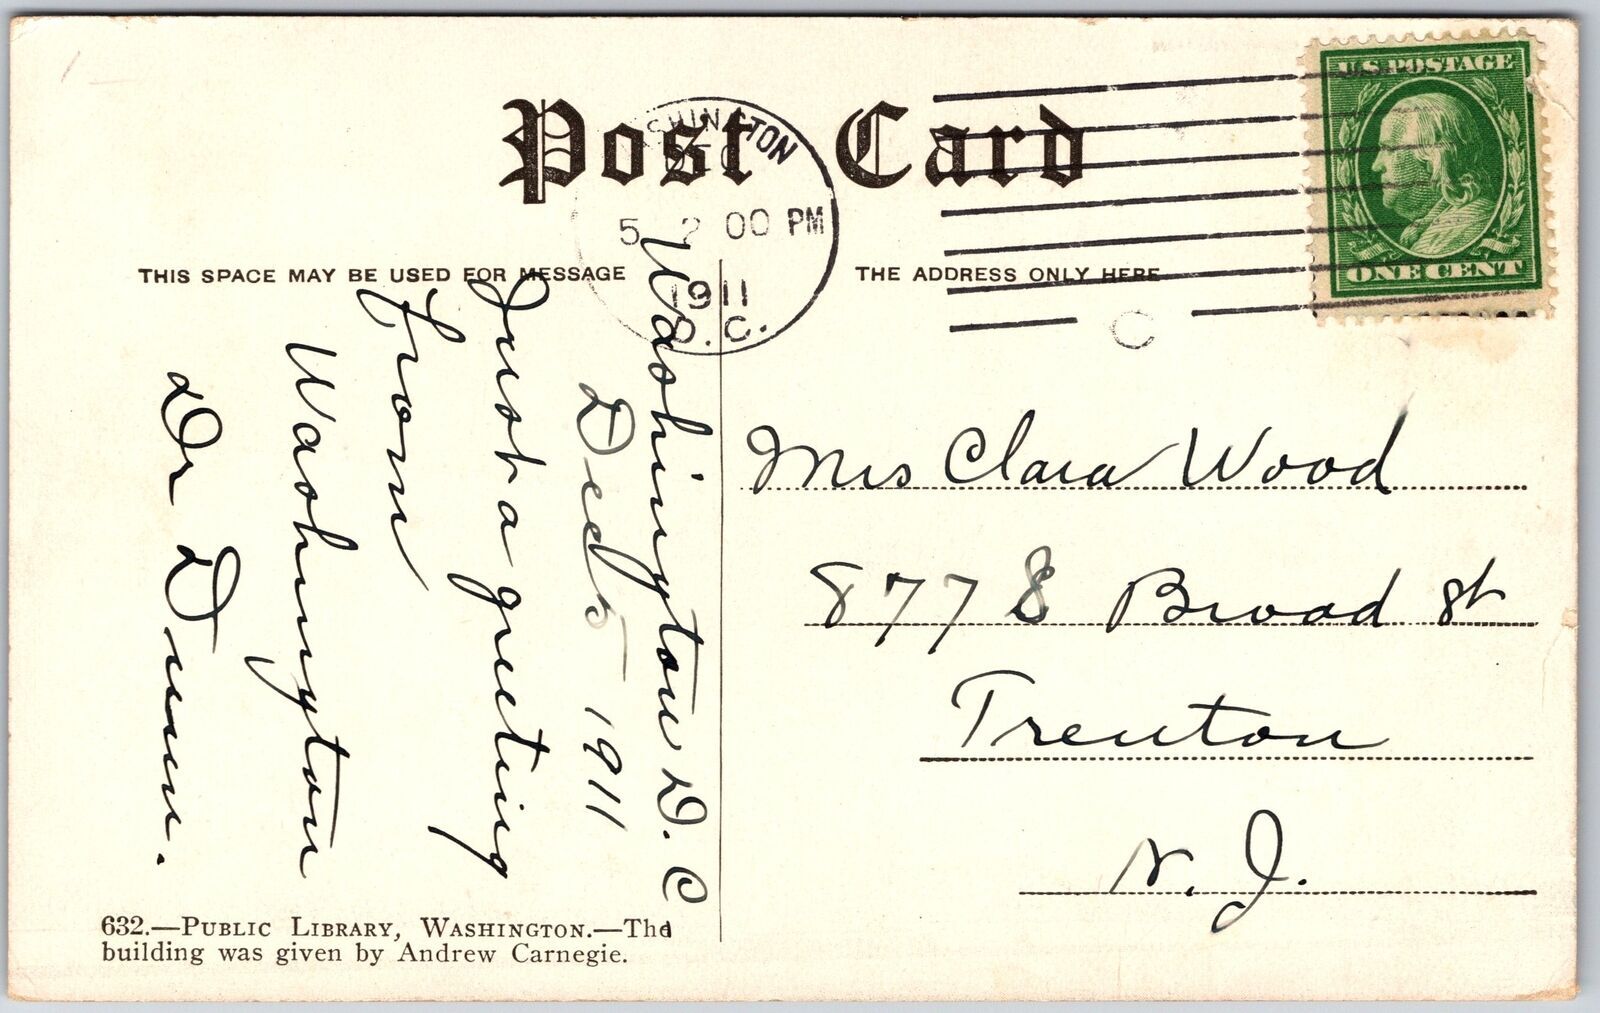 Post Card
U.S. POSTAGE
ONE CENT
SHINGTON
DEC
5 2 00 PM
1911
D.C.
C
THIS SPACE MAY BE USED FOR MESSAGE
THE ADDRESS ONLY HERE
Washington D. C
Dec 5 1911
Just a greeting
from
Washington
Dr Dunn.
Mrs Clara Wood
877 S Broad St
Trenton
N. J.
632.—PUBLIC LIBRARY, WASHINGTON.—The
building was given by Andrew Carnegie.